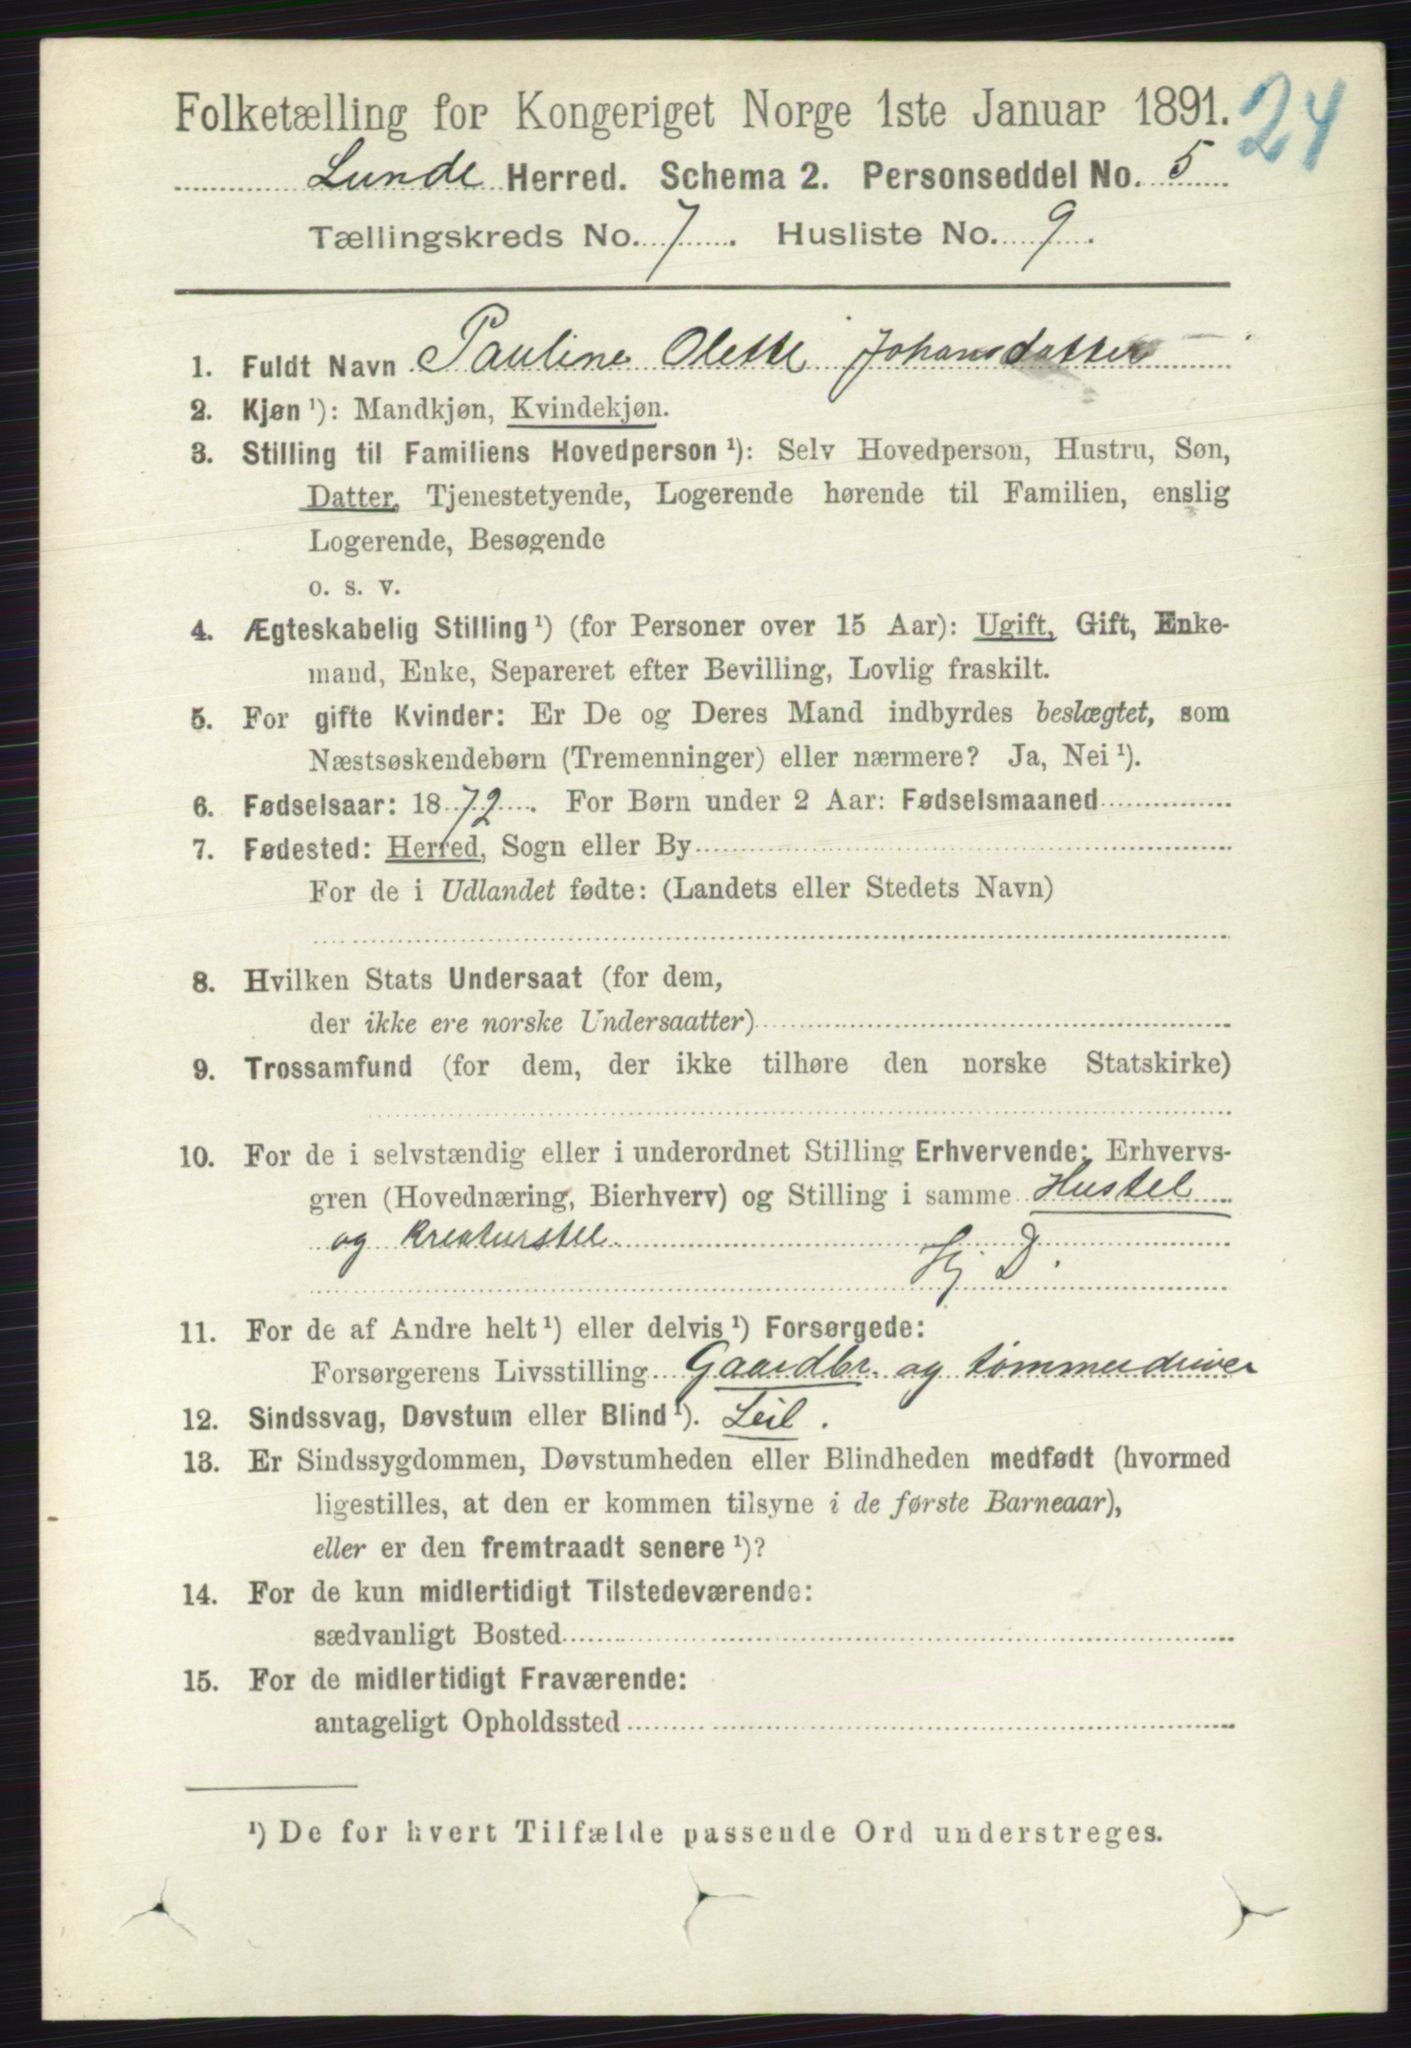 Folketælling for Kongeriget Norge 1ste Januar 1891. 24
Lunde Herred. Schema 2. Personseddel No. 5
Tællingskreds No. 7. Husliste No. 9.
1. Fuldt Navn Pauline Olette Johansdatter
2. Kjøn ¹): Mandkjøn, Kvindekjøn.
3. Stilling til Familiens Hovedperson ¹): Selv Hovedperson, Hustru, Søn,
Datter, Tjenestetyende, Logerende hørende til Familien, enslig
Logerende, Besøgende
o. s. v.
4. Ægteskabelig Stilling ¹) (for Personer over 15 Aar): Ugift, Gift, Enke-
mand, Enke, Separeret efter Bevilling, Lovlig fraskilt.
5. For gifte Kvinder: Er De og Deres Mand indbyrdes beslægtet, som
Næstsøskendebørn (Tremenninger) eller nærmere? Ja, Nei ¹).
6. Fødselsaar: 1872. For Børn under 2 Aar: Fødselsmaaned
7. Fødested: Herred, Sogn eller By
For de i Udlandet fødte: (Landets eller Stedets Navn)
8. Hvilken Stats Undersaat (for dem,
der ikke ere norske Undersaatter)
9. Trossamfund (for dem, der ikke tilhøre den norske Statskirke)
10. For de i selvstændig eller i underordnet Stilling Erhvervende: Erhvervs-
gren (Hovednæring, Bierhverv) og Stilling i samme Hustel
og kreaturstel
Hj D.
11. For de af Andre helt ¹) eller delvis ¹) Forsørgede:
Forsørgerens Livsstilling Gaardbr. og tømmerdriver
12. Sindssvag, Døvstum eller Blind ¹).
13. Er Sindssygdommen, Døvstumheden eller Blindheden medfødt (hvormed
ligestilles, at den er kommen tilsyne i de første Barneaar),
eller er den fremtraadt senere ¹)?
14. For de kun midlertidigt Tilstedeværende:
sædvanligt Bosted
15. For de midlertidigt Fraværende:
antageligt Opholdssted
¹) De for hvert Tilfælde passende Ord understreges.